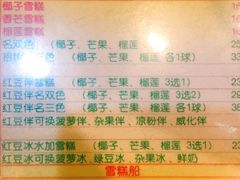 椰子雪糕
香芒雪糕
榴莲雪糕
名双色 (椰子、芒果、榴莲 25
(椰子、芒果、榴莲 各1球) 3
红豆伴雪糕 (椰子、芒果、榴莲 3选1)
红豆伴名双色 (椰子、芒果、榴莲 3选2) 29
红豆伴名三色 (椰子、芒果、榴莲 各1球) 38
红豆伴可换菠萝伴、杂果伴、凉粉伴、威化伴
红豆冰水加雪糕 (椰子、芒果、榴莲 3选1) 23
红豆冰可换菠萝冰、绿豆冰、杂果冰、鲜奶
雪糕船